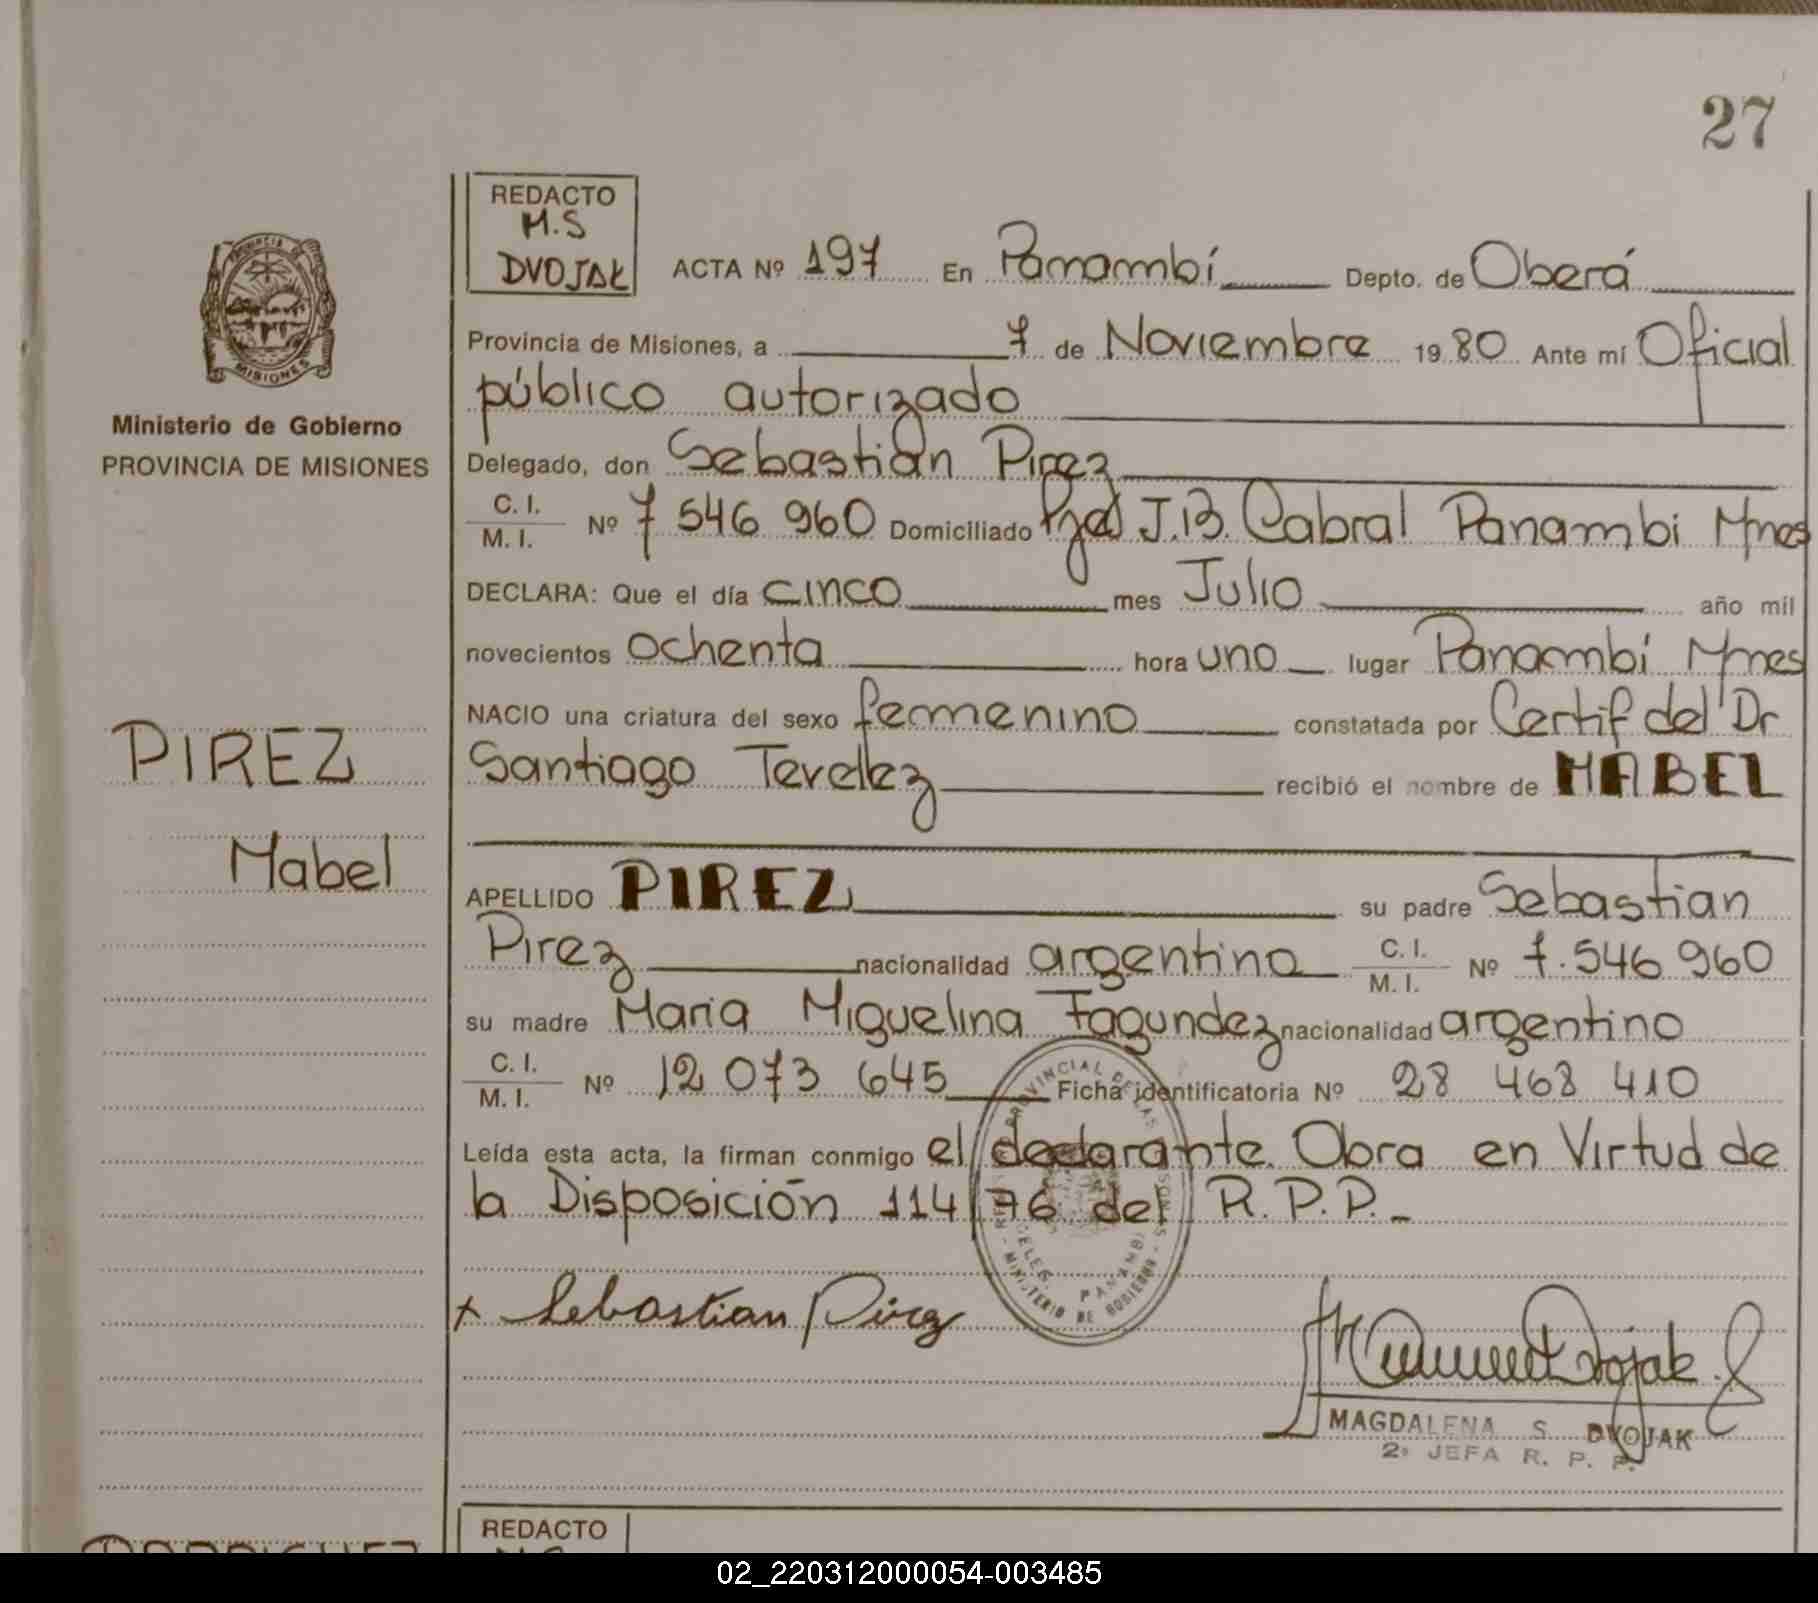 27
REDACTO
M.S
DVOJAK
ACTA Nº 197 En Panambí Depto. de Oberá
Provincia de Misiones, a 7 de Noviembre 1980 Ante mí Oficial
público autorizado
Delegado, don Sebastián Pirez
C. I.
M. I.
Nº 7 546 960 Domiciliado Pje J.B. Cabral Panambi Mnes
DECLARA: Que el día cinco mes Julio año mil
novecientos ochenta hora uno lugar Panambí Mnes
NACIO una criatura del sexo femenino constatada por Certif del Dr
Santiago recibió el nombre de MABEL
APELLIDO PIREZ su padre Sebastian
Pirez nacionalidad argentina C. I.
M. I. Nº 7.546 960
su madre Maria Miguelina Fagundez nacionalidad argentino
C. I.
M. I.
Nº 12 073 645 Ficha identificatoria Nº 28 468 410
Leída esta acta, la firman conmigo el declarante. Obra en Virtud de
la Disposición 114/76 del R.P.P.
x Sebastian Pirez
PROVINCIAL DE LAS
PANAMBI
MINISTERIO DE GOBIERNO
Dvojak
MAGDALENA S. DVOJAK
2º JEFA R. P. P.
PROVINCIA DE
MISIONES
Ministerio de Gobierno
PROVINCIA DE MISIONES
PIREZ
Mabel
REDACTO
02_220312000054-003485